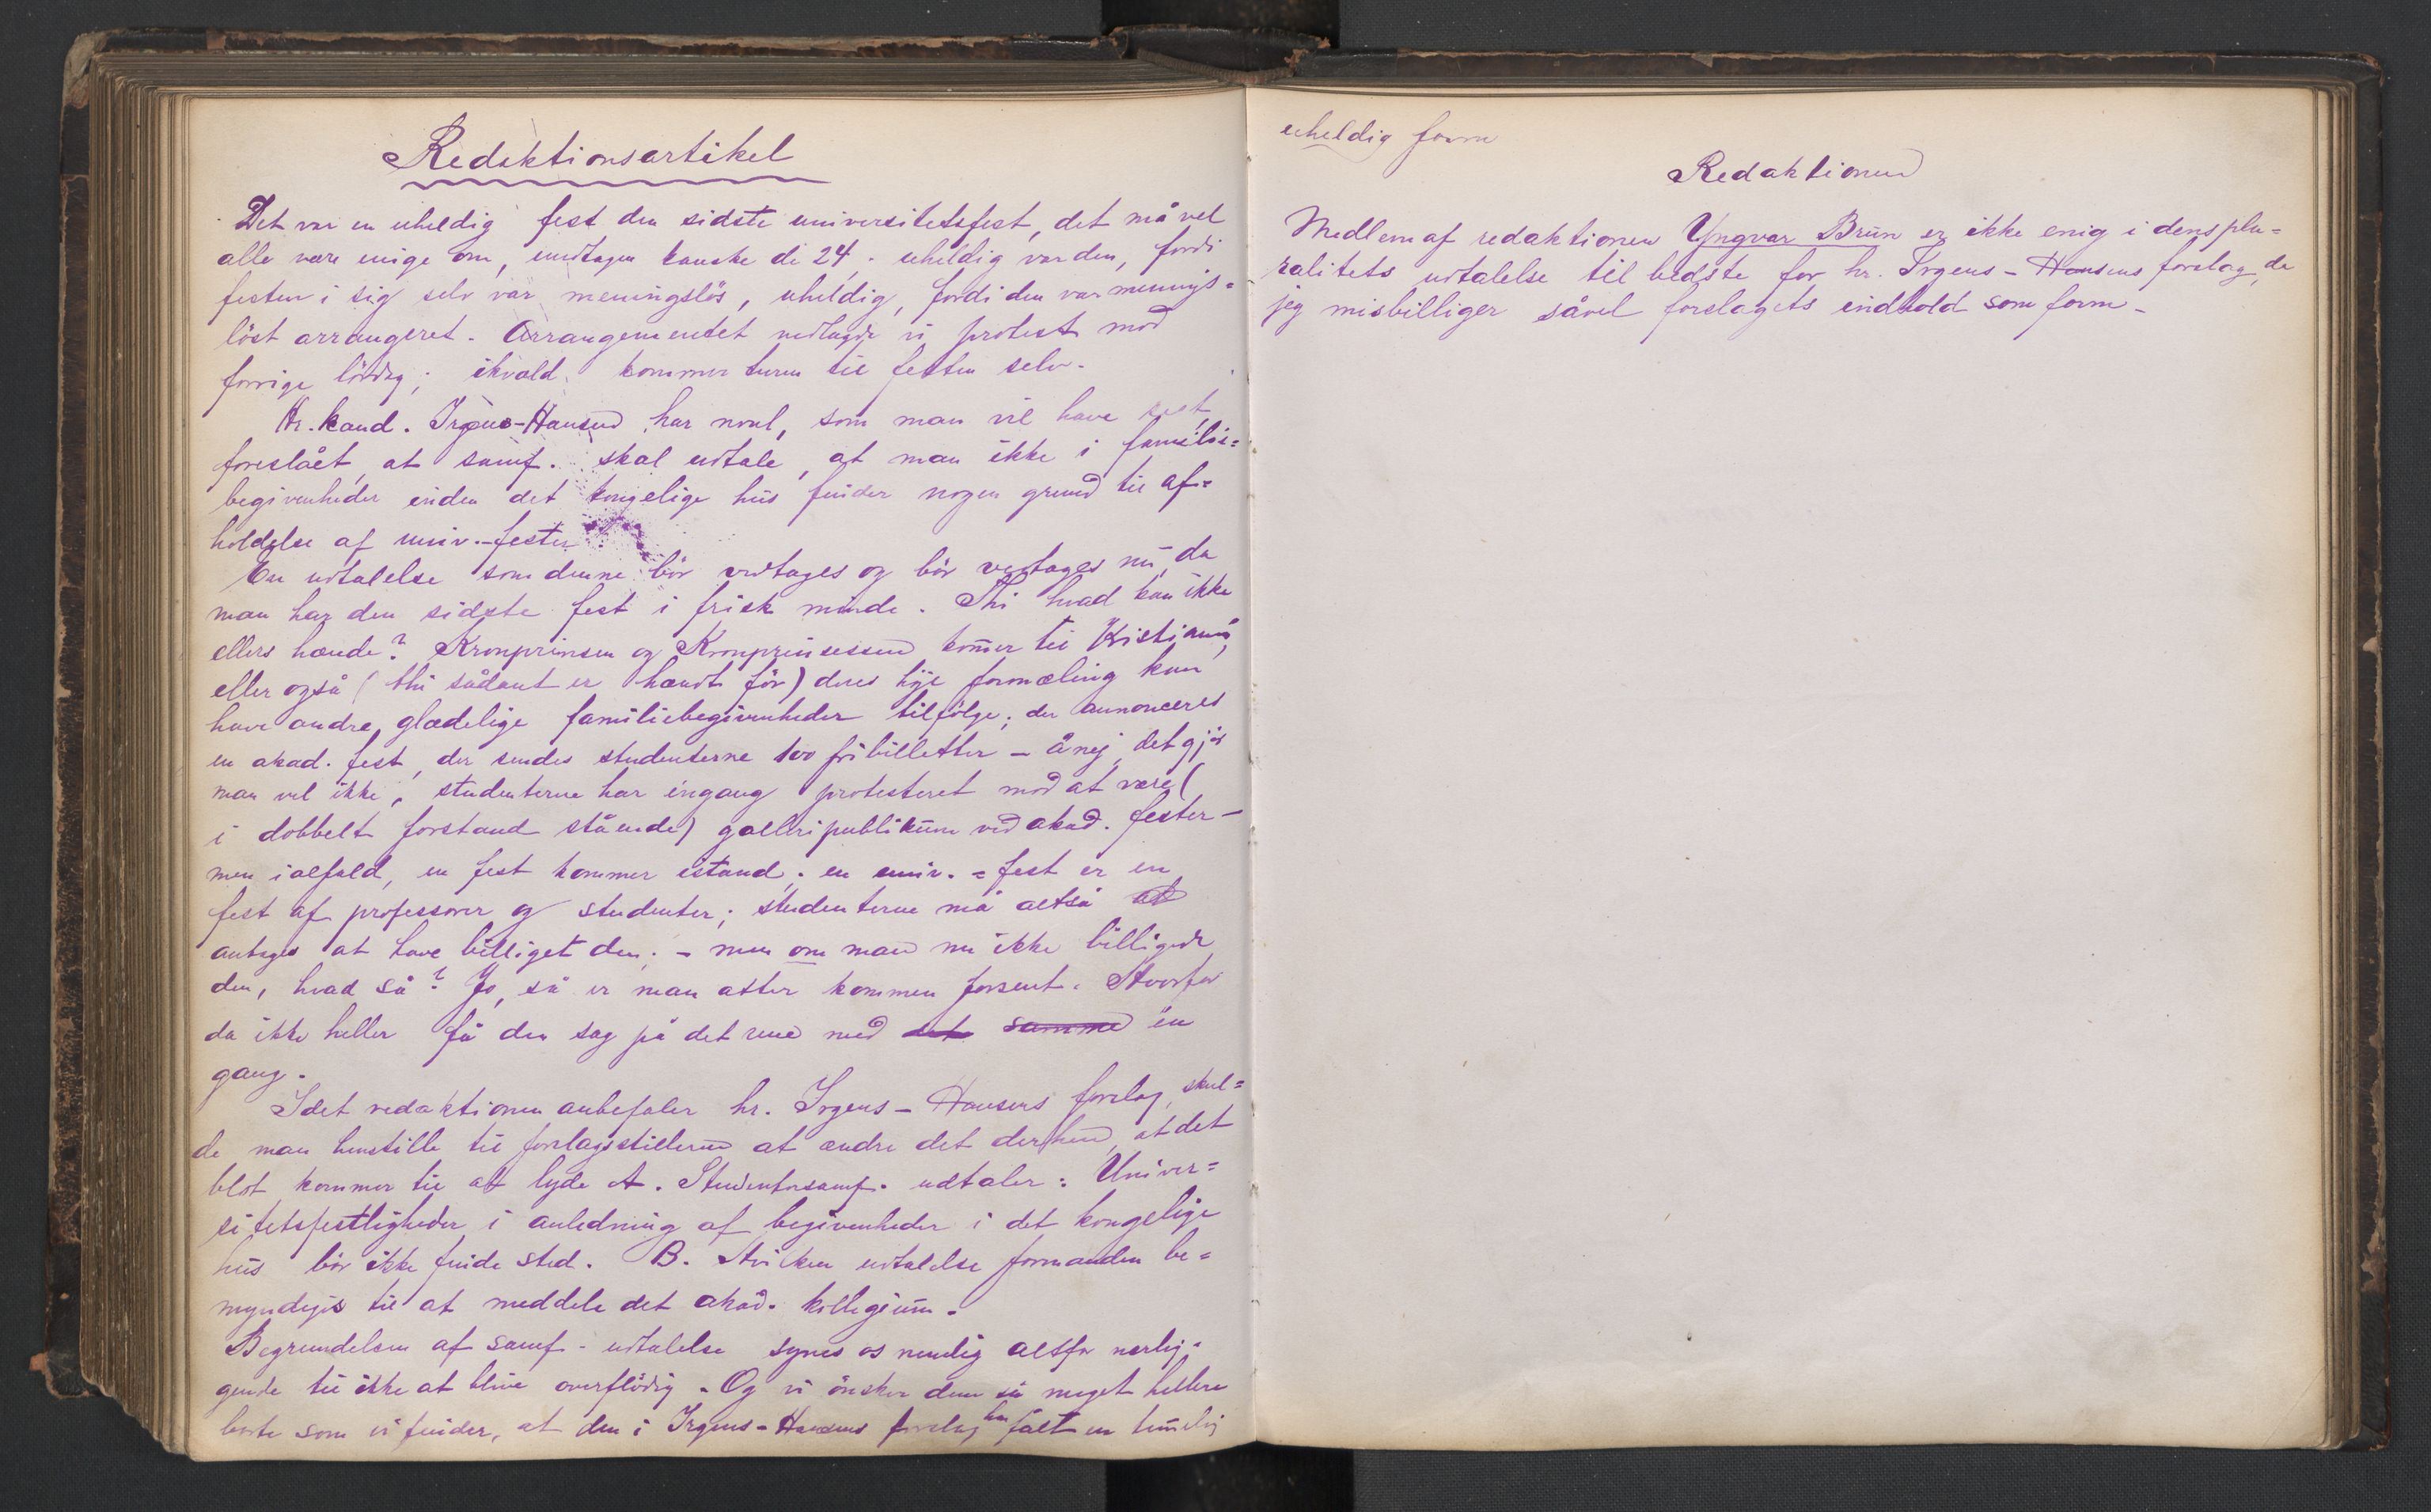 Redaktionsartikel
Det var en uheldig fest den sidste universitetsfest, det må vel
alle være enige om, undtagen kanske de 24. - uheldig var den, fordi
festen i sig selv var meningslös, uheldig, fordi den var menings=
löst arrangeret. Arrangementet nedlagde vi protest mod
forrige lördag; ikvæld kommer turen til festen selv.
Hr. kand. Irgens-Hansen har nonl, som man vil have
foreslået, at samf. skal udtale, at man ikke i familie=
begivenheder inden det kongelige hus finder nogen grund til af=
holdelse af univ.-fester.
En udtalelse som denne bör vedtages og bör vedtages nu, da
man har den sidste fest i frisk minde. Thi hvad kan ikke
ellers hænde? Kronprinsen og Kronprinsessen kom̄er til Kristiania,
eller også (thi sådant er hændt för) deres höje formæling kan
have andre glædelige familiebegivenheder tilfölge; der annonceres
en akad. fest, der sendes studenterne 100 fribilletter – å nej, det gjör
man vel ikke; studenterne har engang protesteret mod at være (
i dobbelt forstand stående) galleripublikum ved akad. fester –
men ialfald, en fest kommer istand; en univ.=fest er en
fest af professorer og studenter; studenterne må altså at
antages at have billiget den; – men om man nu ikke billigede
den, hvad så? Jo, så er man atter kommen forsent. Hvorfor
da ikke heller få den sag på det rene med det samme én
gang.
Idet redaktionen anbefaler hr. Irgens-Hansens forslag, skul=
de man henstille til forslagsstilleren at ændre det derhen, at det
blot kommer til at lyde A. Studentersamf. udtaler: Univer=
sitetsfestligheder i anledning af begivenheder i det kongelige
hus bör ikke finde sted. B. Hvilken udtalelse formanden be=
myndiges til at meddele det akad. kollegium.
Begrundelsen af samf.-udtalelse synes os nemlig altfor nærlig=
gende til ikke at blive overflödig. Og vi önsker den så meget hellere
borte som vi finder, at den i Irgens-Hansens forslag har fået en tem̄elig
uheldig form
Redaktionen
Medlem af redaktionen Yngvar Brun er ikke enig i dens plu=
ralitets udtalelse til bedste for hr. Irgens-Hansens forslag, da
jeg misbilliger såvel forslagets indhold som form –